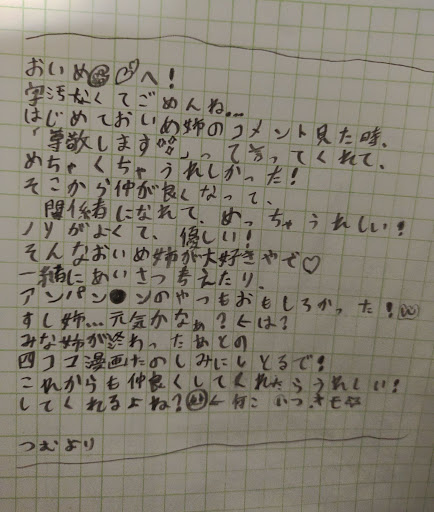 おいめ へ!
字汚なくてごめんね...
はじめておいめ姉のコメント見た時、
「尊敬します 」って言ってくれて、
めちゃくちゃうれしかった!
そこから仲が良くなって、
関係者になれて、めっちゃうれしい!
ノリがよくて、優しい!
そんなおいめ姉が大好きやで♡
一緒にあいさつ考えたり、
アンパン●ンのやつもおもしろかった!
すし姉...元気かなぁ?←は?
みな姉が終わったあとの
四コマ漫画たのしみにしとるで!
これからも仲良くしてくれたらうれしい!
してくれるよね? ←
つむより